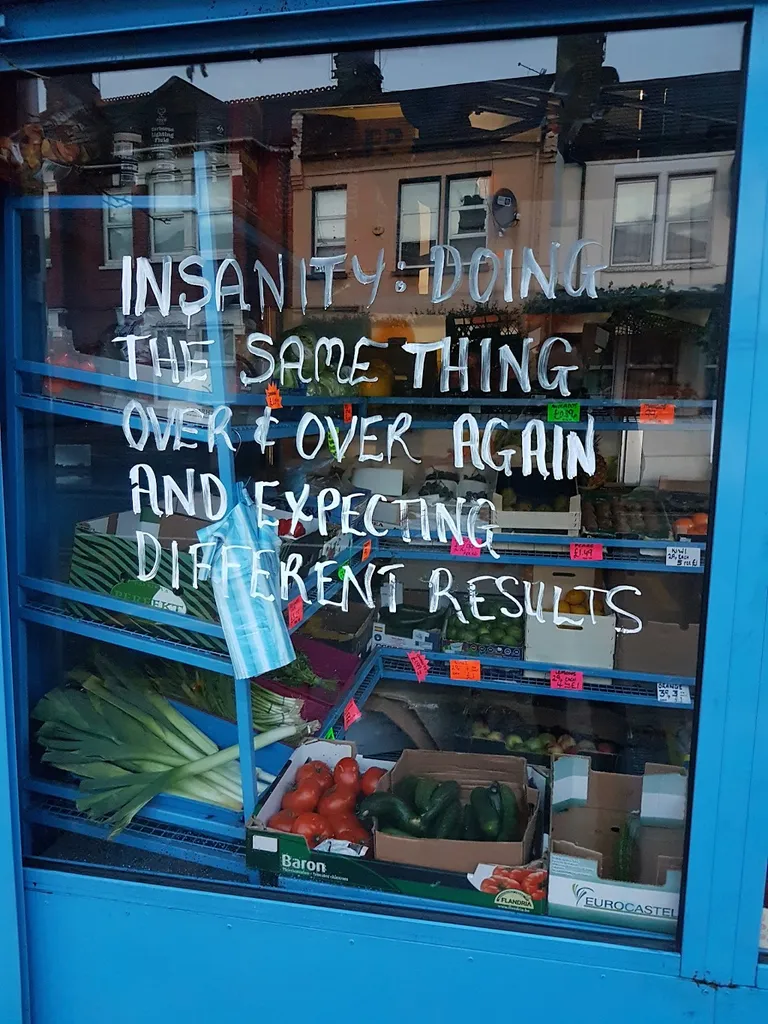 INSANITY: DOING
THE SAME THING
OVER & OVER AGAIN
AND EXPECTING
DIFFERENT RESULTS
PERFEKT
Baron
FLANDRIA
EUROCASTEL